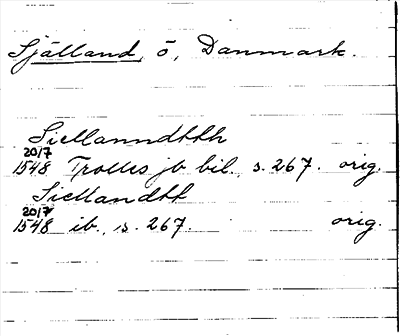 Själland, ö, Danmark.
Siellanndttth
20/7
1548 Trolles jb bil. s. 267. orig.
Siellandtt
20/7
1548 ib. s. 267. orig.